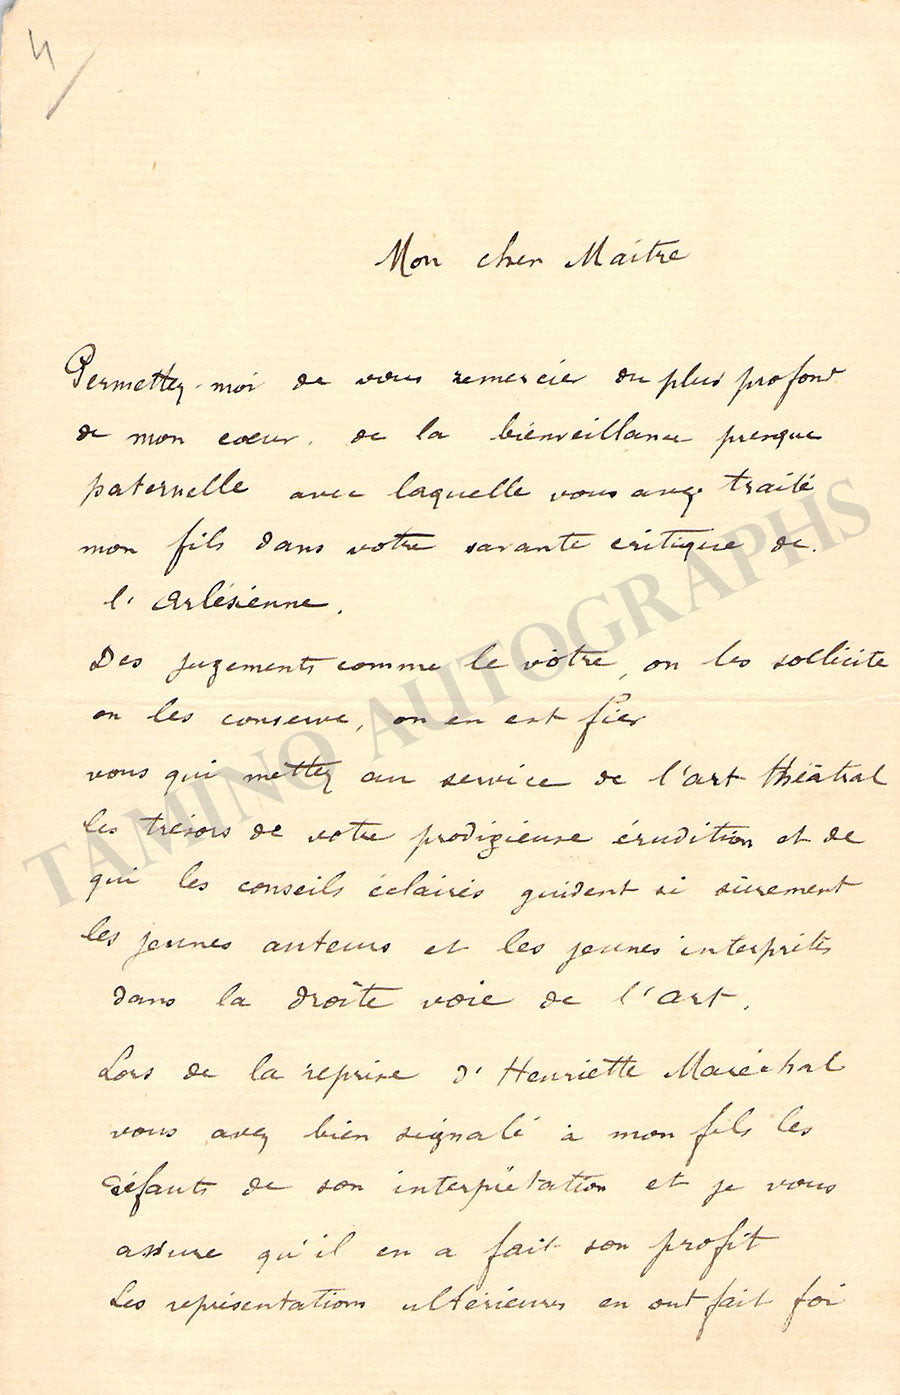 4/
Mon cher Maître
Permettez-moi de vous remercier du plus profond
de mon cœur, de la bienveillance presque
paternelle avec laquelle vous avez traité
mon fils dans votre savante critique de
l'Arlésienne.
Des jugements comme le vôtre, on les sollicite
on les conserve, on en est fier
vous qui mettez au service de l'art théâtral
les trésors de votre prodigieuse érudition et de
qui les conseils éclairés guident si sûrement
les jeunes auteurs et les jeunes interprètes
dans la droite voie de l'art.
Lors de la reprise d'Henriette Maréchal
vous avez bien signalé à mon fils les
défauts de son interprétation et je vous
assure qu'il en a fait son profit
Les représentations ultérieures en ont fait foi
TAMINO AUTOGRAPHS